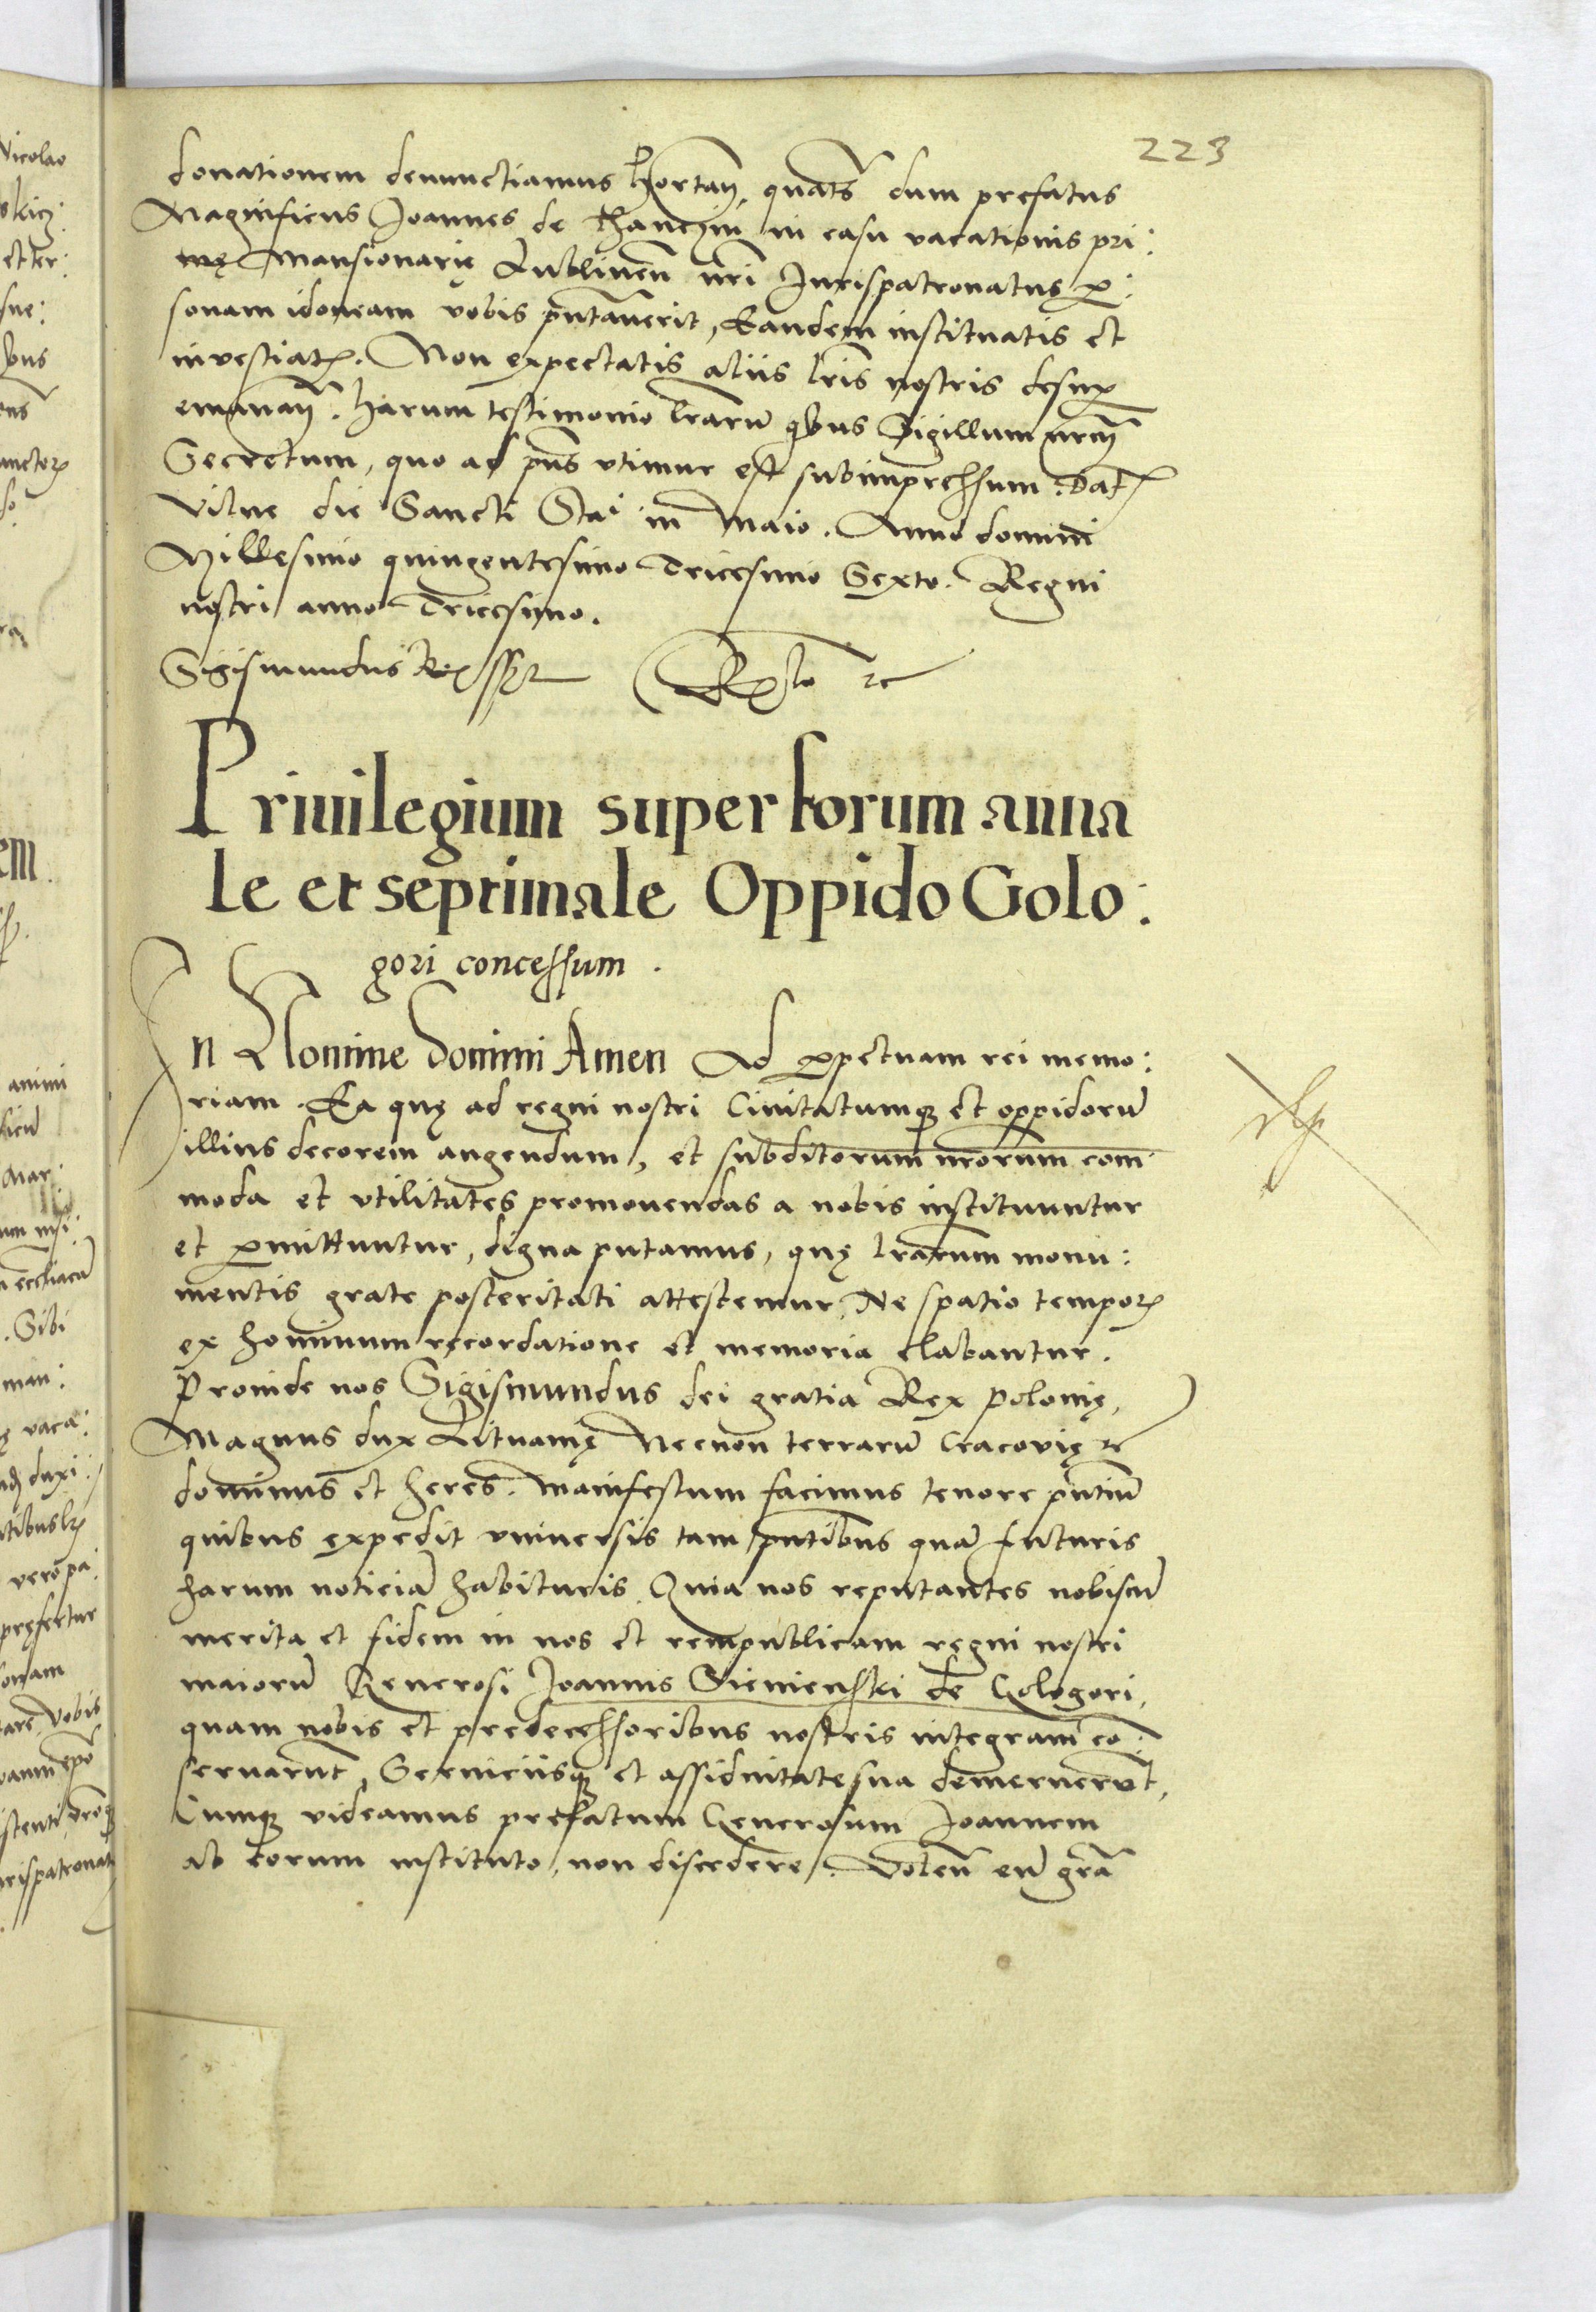 223
donationem denunctiamus Hortań, quatš dum prefatus
Magnificus Joannes de Thanczin in casu vacationis pri:
mę Mansionarię Lublineñ nri Jurispatronatus per:
sonam idoneam vobis pñtauerit, Eandem instituatis et
inuestiatis. Non expectatis aliis lris nostris desuper
emanań. Harum testimonio lrarũ qbus Sigillum nrm̃
Secretum, quo ad pñs vtimur est subimpressum. Dat
Vilne die Sancti Stai in Maio. Anno domini
Millesimo quingentesimo Tricesimo Sexto. Regni
nostri anno Tricesimo.
Sigismundus Rex sszt
Priuilegium super forum anna
le et septimale Oppido Golo:
gori concessum.
In Nomine Domini Amen Ad perpetuam rei memo:
riam. Ea quę ad regni nostri Ciuitatumqꝫ et oppidorũ
illius decorem augendum, et subditorum nr̃orum com
moda et vtilitates promouendas a nobis instituuntur
et permittuntur, digna putamus, quę lrarum monu:
mentis grate posteritati attestemur, Ne spatio temporꝫ
ex hominum recordatione et memoria elabantur.
Proinde nos Sigismundus dei gratia Rex Polonię,
Magnus dux Lituanię Necnon terrarũ Cracovię ꝛc
dominus et heres. Manifestum facimus tenore pñtiũ
quibus expedit vniuersis tam pñtibus quã futuris
harum noticiã habituris. Quia nos reputantes nobiscũ
merita et fidem in nos et rempublicam regni nostri
maiorũ Generosi Joannis Sienienski de Gologori,
quam nobis et predecessoribus nostris integram cõ:
seruarũt, Seruiciisqꝫ et assiduitate sua demeruerũt,
Cumqꝫ videamus prefatum Generosum Joannem
ab eorum instituto, non discedere. Voleñ eũ grã